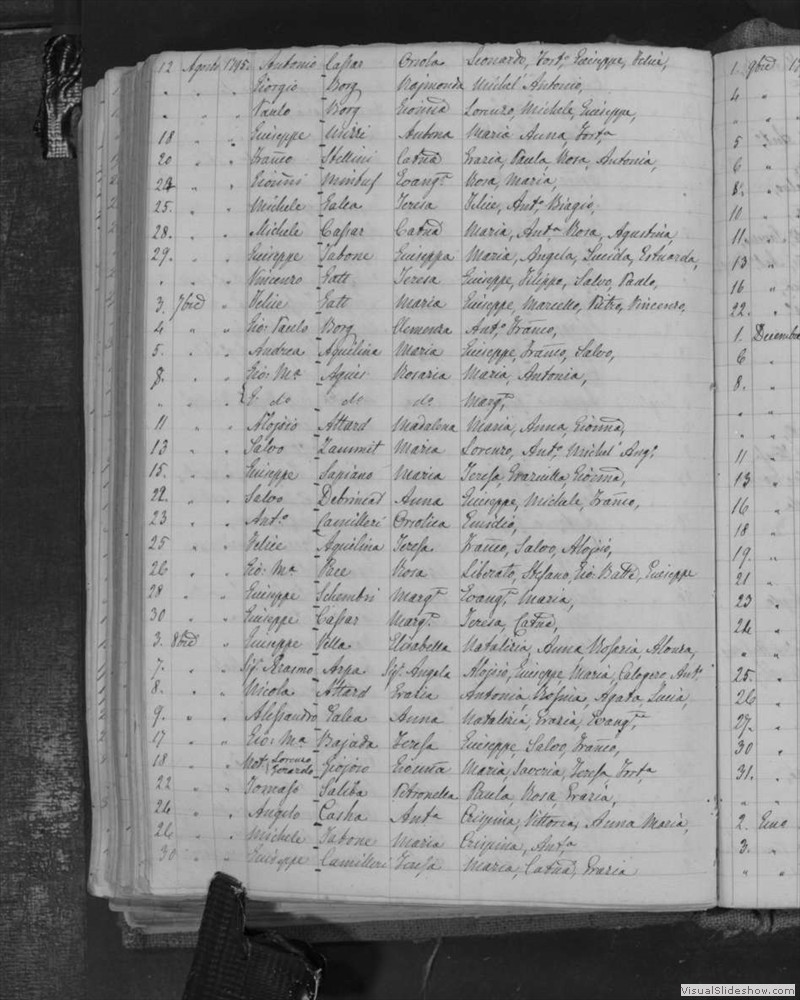 12 Agosto 1795. Antonio Cassar Orsola Leonardo, Fort.o Giuseppe, Felice,
" " " Giorgio Borg Rajmonda Michel' Antonio,
" " " Paulo Borg Lorenzo, Michele, Giuseppe,
18 " " Giuseppe Mizzi Antona Maria Anna Fort.a
20 " " Franco Stellini Catna Grazia, Paula Rosa, Antonia,
24 " " Evang.a Rosa, Maria,
25. " " Michele Galea Teresa Felice, Ant.o Biagio,
28. " " Michele Cassar Catna Maria, Ant.a Rosa, Agostina,
29. " " Giuseppe Tabone Giuseppa Maria, Angela, Lucida,
" " " Vincenzo Gatt Teresa Giuseppe, Filippo, Salvo, Paolo,
3. 7bre " Felice Gatt Maria Giuseppe, Marcello, Pietro, Vincenzo,
4 " " Gio: Paulo Borg Clemenza Ant.o Franco,
5. " " Andrea Aquilina Maria Giuseppe, Franco, Salvo,
8. " " Gio: Ma Agius Rosaria Maria, Antonia,
" " " do do do Marg.a
11 " " Alojsio Attard Madalena Maria, Anna,
13 " " Salvo Zammit Maria Lorenzo, Ant.o Michel' Ang.o
15. " " Giuseppe Sapiano Maria Teresa,
22. " " Salvo Debrincat Anna Giuseppe, Michele, Franco,
23 " " Ant.o Camilleri
25 " " Felice Aquilina Teresa Franco, Salvo, Alojsio,
26 " " Gio: Ma Pace Rosa Liberato, Stefano, Gio: Batta, Giuseppe
28 " " Giuseppe Schembri Marg.a Evang.a Maria,
30 " " Giuseppe Cassar Marg.a Teresa, Catna,
3. 8bre " Giuseppe Vella Elisabella Natalizia, Anna Rosaria,
7. " " Sig. Erasmo Arpa Sig.a Angela Alojsio, Giuseppe Maria, Calogero, Ant.o
8. " " Nicola Attard Grazia Antonia, Agata, Lucia,
9. " " Alessandro Galea Anna Natalizia, Grazia, Evang.a
17 " " Gio: Ma Bajada Teresa Giuseppe, Salvo, Franco,
18 " " Not. Lorenzo Gerardo Maria, Saveria, Teresa, Fort.a
22 " " Tomaso Saliba Petronella Paula, Rosa, Grazia,
24 " " Angelo Casha Ant.a Crispina, Vittoria, Anna Maria,
26 " " Michele Tabone Maria Crispina, Ant.a
30 " " Giuseppe Camilleri Teresa Maria, Catna, Grazia
1. 9bre 17
4 "
" "
5 "
6 "
8. "
10 "
11. "
13 "
16 "
22. "
1. Decembre
6 "
8. "
" "
" "
11 "
13 "
16 "
18 "
19. "
21 "
23 "
24 "
" "
25. "
26 "
27. "
30 "
31. "
" "
2.
3. "
" "
VisualSlideshow.com